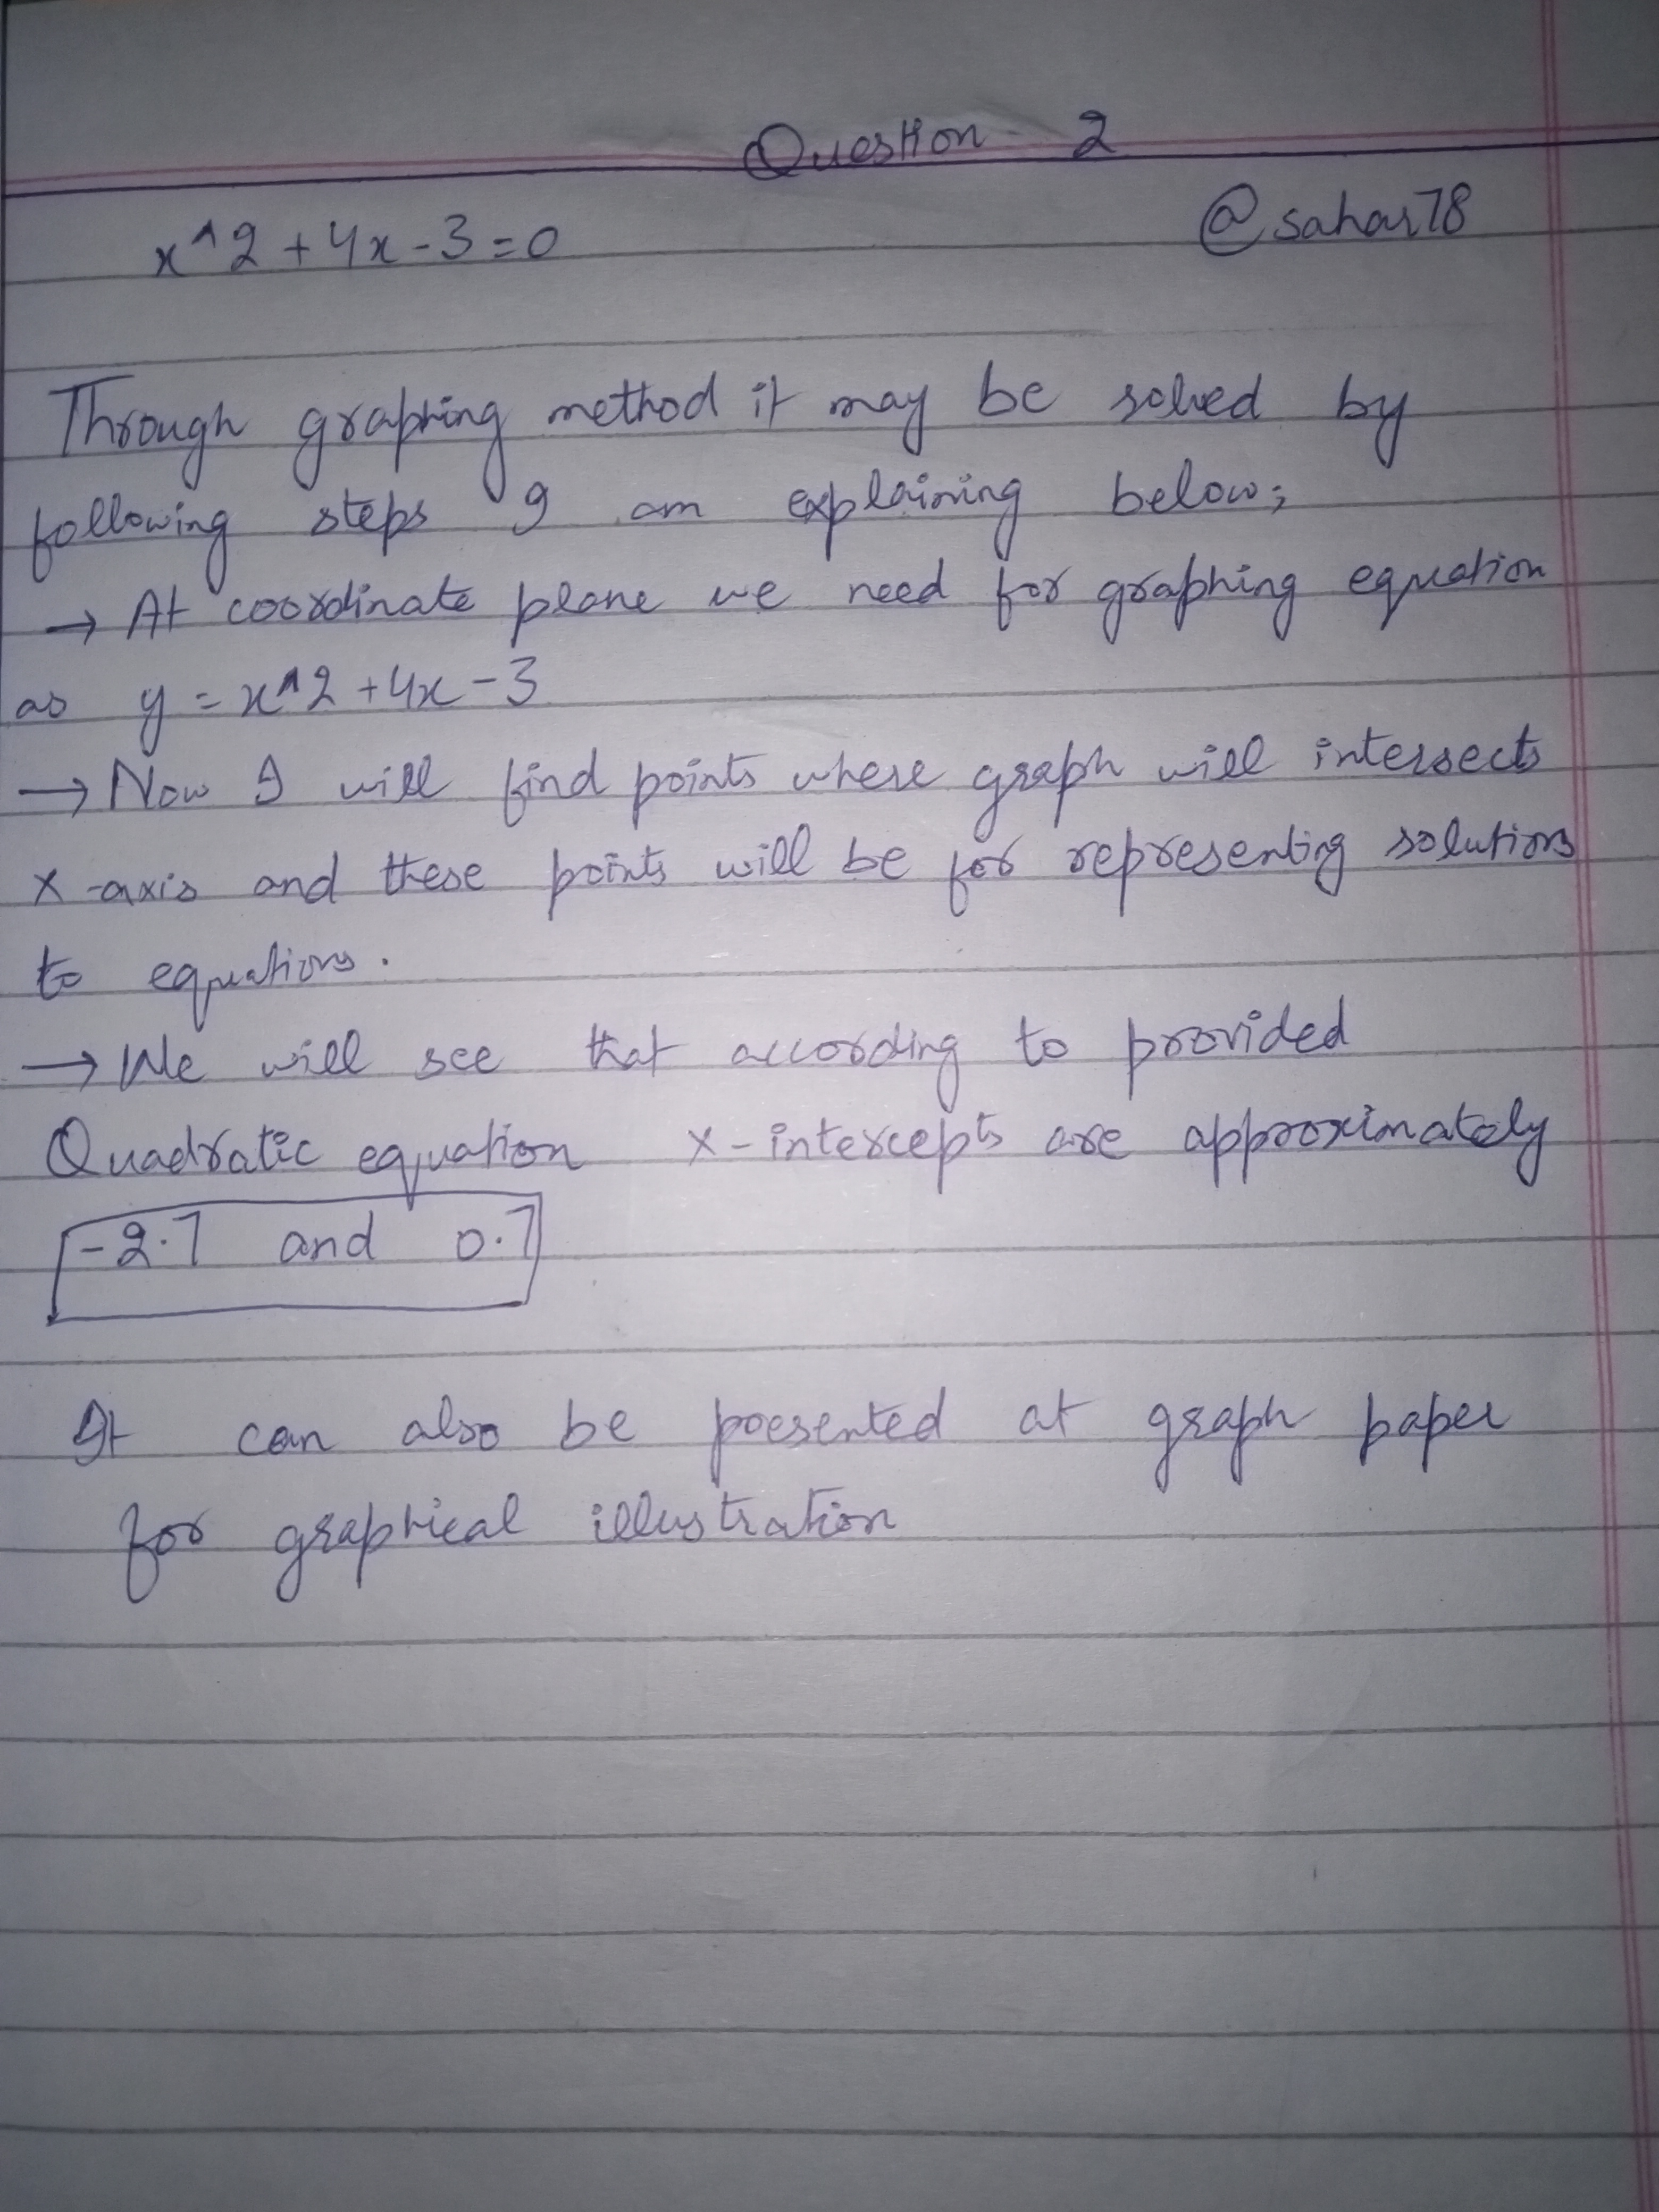 Question - 2
@sahar78
x^2 + 4x - 3 = 0
Through graphing method it may be solved by
following steps I am explaining below;
→ At coordinate plane we need for graphing equation
as y = x^2 + 4x - 3
→ Now I will find points where graph will intersects
x-axis and these points will be for representing solutions
to equations.
→ We will see that according to provided
Quadratic equation x-intercepts are approximately
-2.7 and 0.7
It can also be presented at graph paper
for graphical illustration